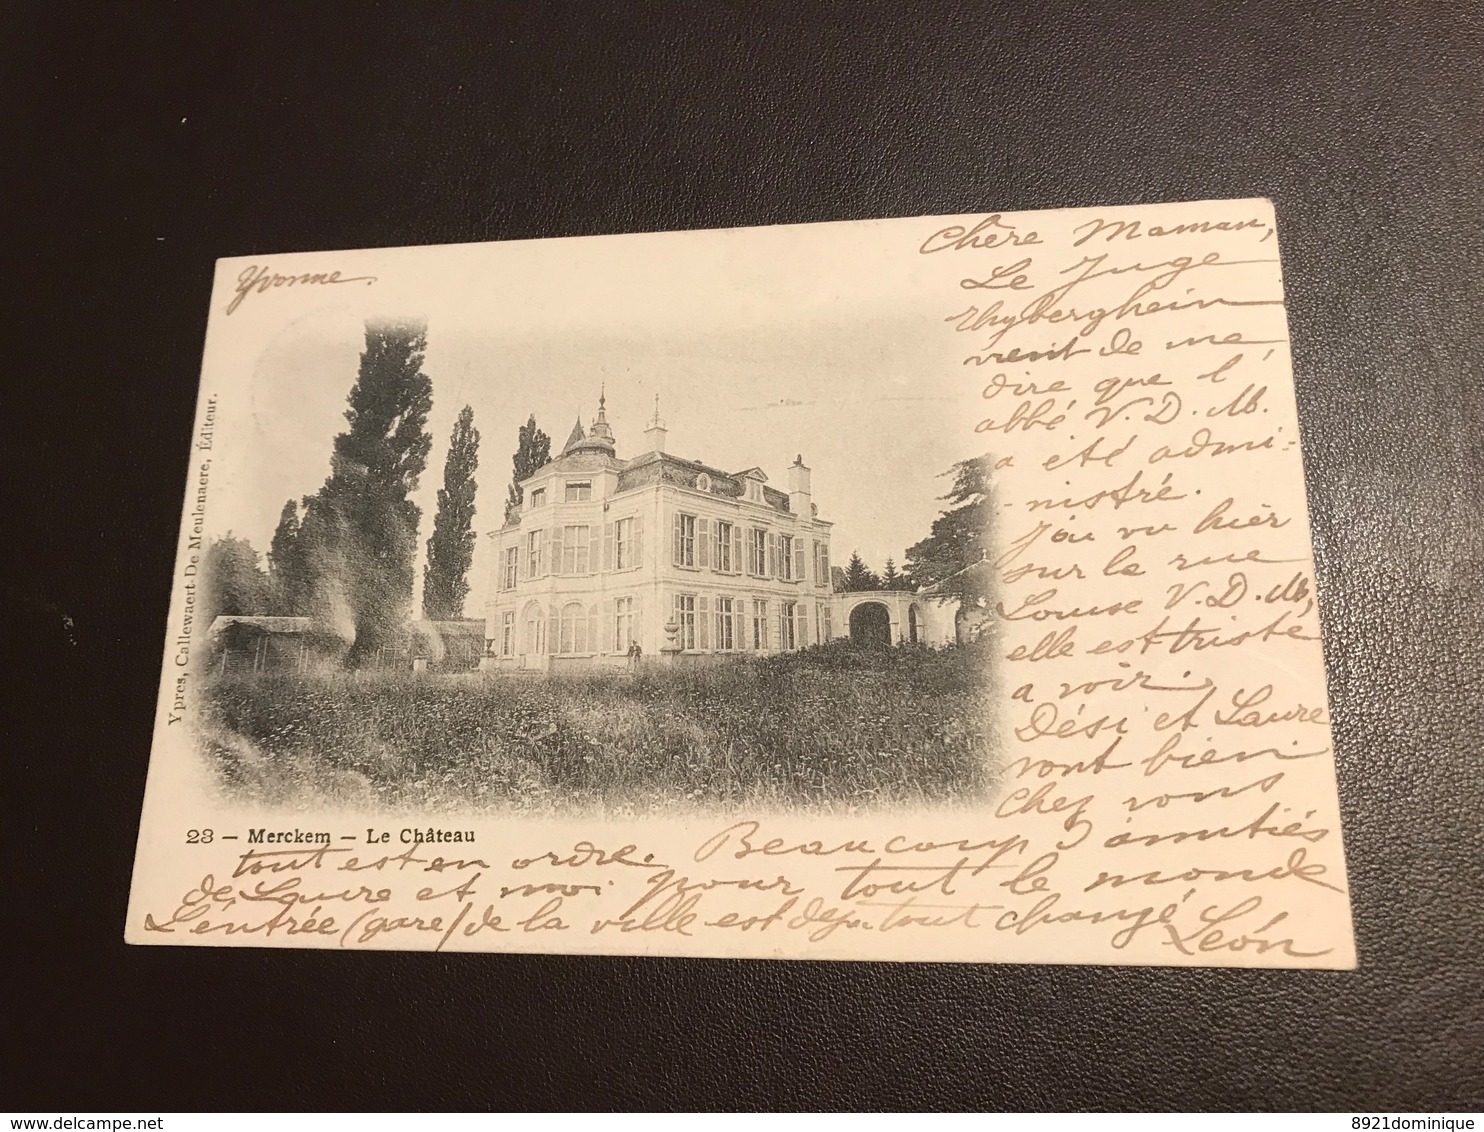 Yvonne.
Chère Maman,
Le Juge
Thyberghein
vient de me
dire que l'
abbé V. D. M.
a été admi-
-nistré.
J'ai vu hièr
sur la rue
Louise V. D. M,
elle est triste
a voir.
Dési et Laure
vont bien
chez vous
tout est en ordre. Beaucoup d'amitiés
de Laure et moi pour tout le monde
L'éntrée (gare) de la ville est deja tout changé
Léon
Ypres, Callewaert-De Meulenaere, Éditeur.
23 — Merckem — Le Château
delcampe.net
8921dominique